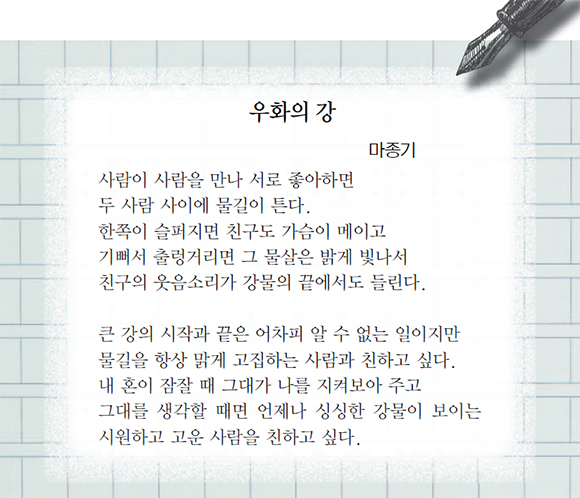 우화의 강
마종기
사람이 사람을 만나 서로 좋아하면
두 사람 사이에 물길이 튼다.
한쪽이 슬퍼지면 친구도 가슴이 메이고
기뻐서 출렁거리면 그 물살은 밝게 빛나서
친구의 웃음소리가 강물의 끝에서도 들린다.
큰 강의 시작과 끝은 어차피 알 수 없는 일이지만
물길을 항상 맑게 고집하는 사람과 친하고 싶다.
내 혼이 잠잘 때 그대가 나를 지켜보아 주고
그대를 생각할 때면 언제나 싱싱한 강물이 보이는
시원하고 고운 사람을 친하고 싶다.